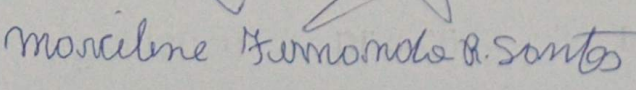 Marcilene Fernanda R. Santos